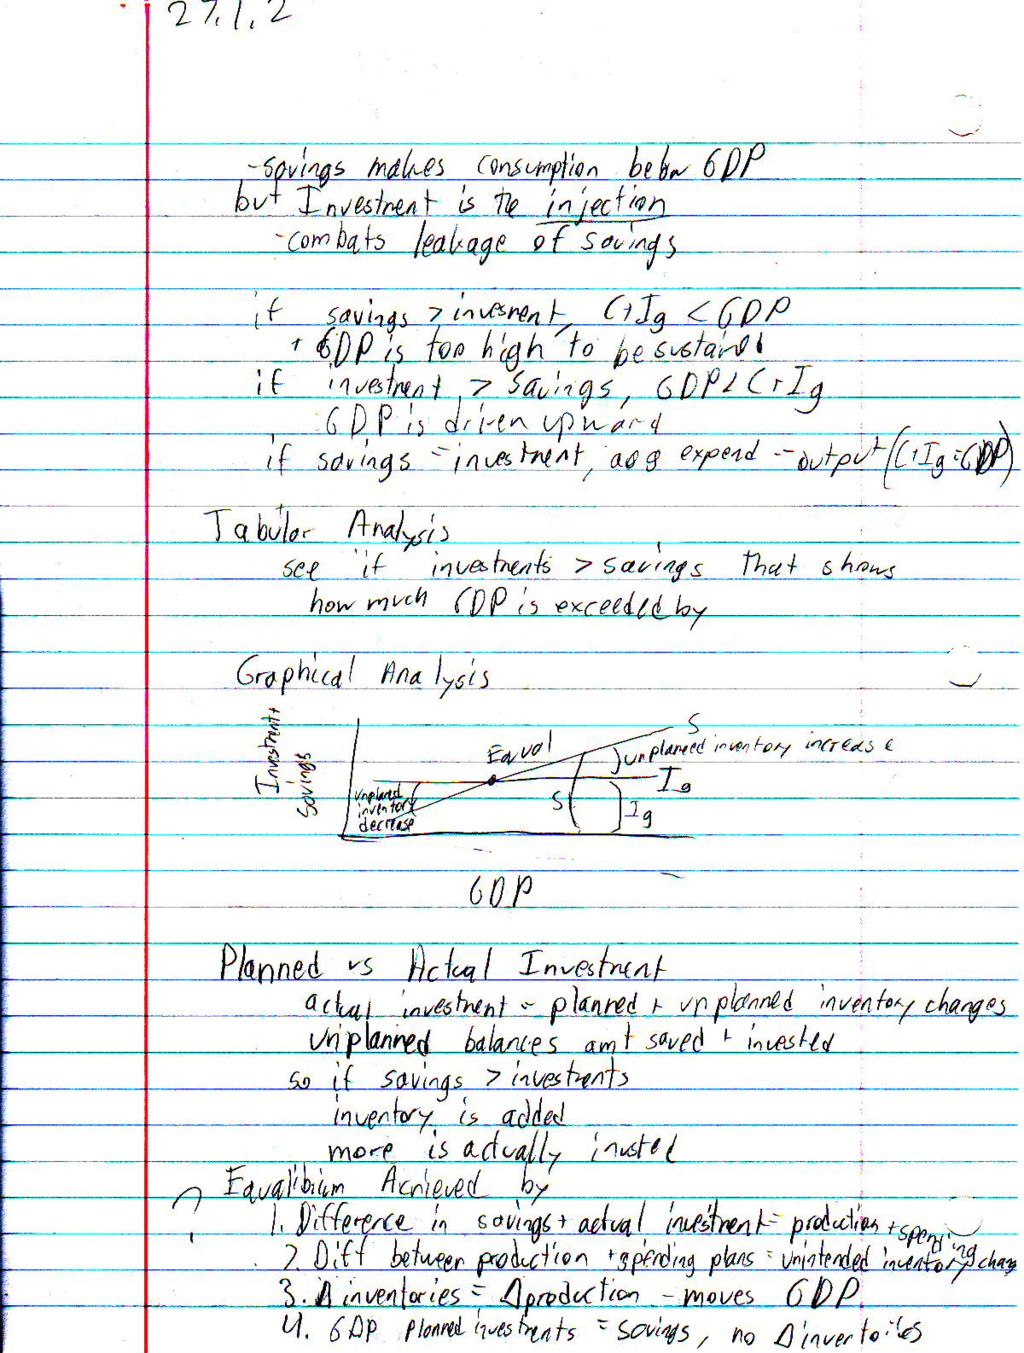 27.1.2
-savings makes consumption below GDP
but Investment is the injection
-combats leakage of savings
if savings > invesment, C+Ig < GDP
+ GDP is too high to be sustained
if investment > savings, GDP < C+Ig
GDP is driven upward
if savings = investment, agg expend = output (C+Ig=GDP)
Tabular Analysis
see if investments > savings that shows
how much GDP is exceeded by
Graphical Analysis
Investment+
Savings
S
Equal
unplanned inventory increase
Ig
unplaned
inventory
decrease
S
Ig
GDP
Planned vs Actual Investment
actual investment = planned + unplanned inventory changes
unplanned balances amt saved + invested
so if savings > investments
inventory is added
more is actually invsted
? Equalibium Achieved by
1. Difference in savings + actual investment = production + spending
2. Diff between production + spending plans = unintended inventory chang
3. Δ inventories = Δ production - moves GDP
4. GDP planned investments = savings, no Δ inventoiies